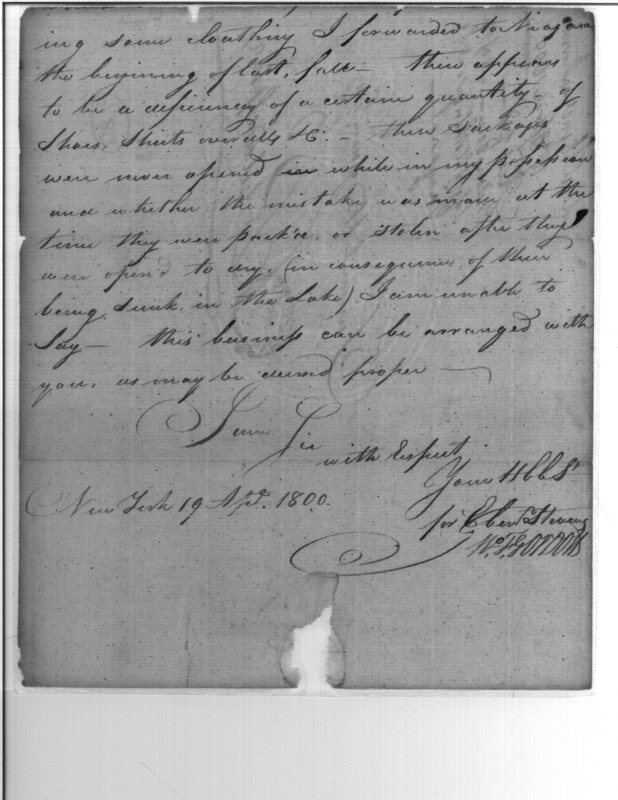 ing some cloathing I forwarded to Niagara
the begining of last, fall – there appears
to be a deficiency of a certain quantity – of
Shoes, Shirts overalls &c. – these packages
were never opened in while in my possession
and whether the mistake was made at the
time they were pack'd. or stolen after they
were open'd to dry. (in consequence of their
being sunk in the Lake) I am unable to
Say – this business can be arranged with
you. as may be deemed proper –
I am Sir
with Respect
Your H bb St
New York 19 Apl. 1800.
for Eben Stevens
W. F. Gordon